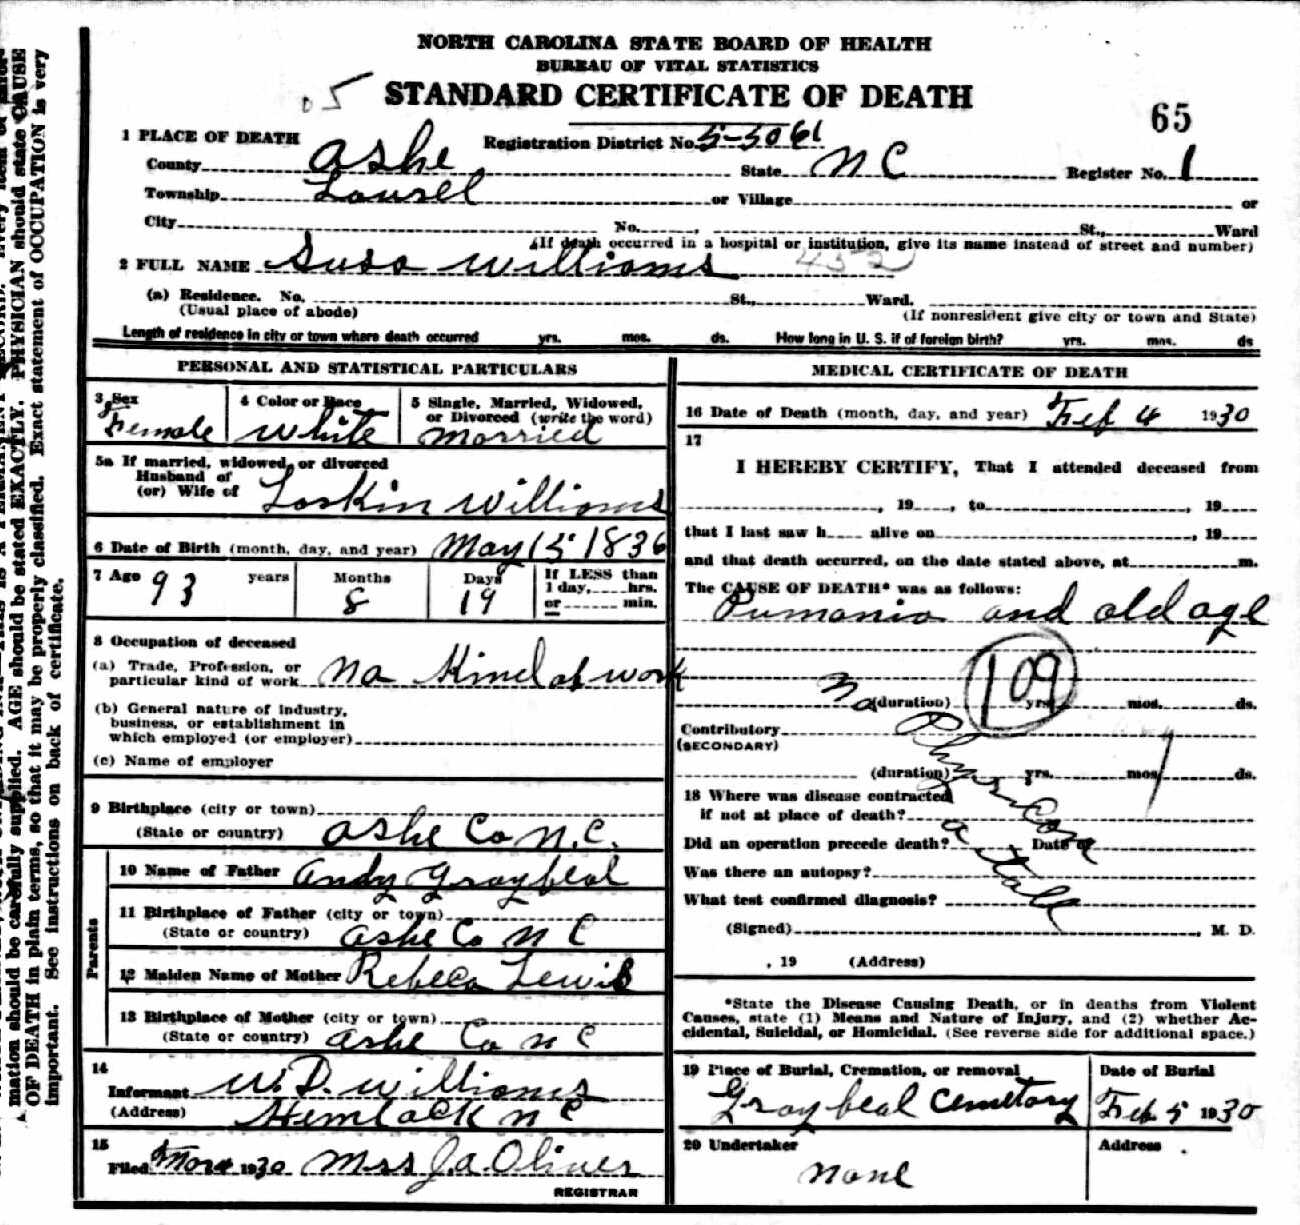 NORTH CAROLINA STATE BOARD OF HEALTH
BUREAU OF VITAL STATISTICS
05 STANDARD CERTIFICATE OF DEATH
65
1 PLACE OF DEATH Registration District No. 5-5061
County Ashe State N C Register No. 1
Township Laurel or Village or
City No. , St., Ward
(If death occurred in a hospital or institution, give its name instead of street and number)
2 FULL NAME Susa Williams 452
(a) Residence. No. St., Ward.
(Usual place of abode) (If nonresident give city or town and State)
Length of residence in city or town where death occurred yrs. mos. ds. How long in U. S. if of foreign birth? yrs. mos. ds
PERSONAL AND STATISTICAL PARTICULARS
3 Sex 4 Color or Race 5 Single, Married, Widowed,
or Divorced (write the word)
Female White Married
5a If married, widowed, or divorced
Husband of
(or) Wife of Larkin Williams
6 Date of Birth (month, day, and year) May 15 1836
7 Age 93 years Months 8 Days 19 If LESS than
1 day, hrs.
or min.
8 Occupation of deceased
(a) Trade, Profession, or
particular kind of work No Kind of work
(b) General nature of industry,
business, or establishment in
which employed (or employer)
(c) Name of employer
9 Birthplace (city or town)
(State or country) Ashe Co N.C.
Parents
10 Name of Father Andy Graybeal
11 Birthplace of Father (city or town)
(State or country) Ashe Co N C
12 Maiden Name of Mother Rebeca Lewis
13 Birthplace of Mother (city or town)
(State or country) Ashe Co N C
14
Informant W. D. Williams
(Address) Hemlock N C
15
Filed 1930 Mrs J. A. Oliver
REGISTRAR
MEDICAL CERTIFICATE OF DEATH
16 Date of Death (month, day, and year) Feb 4 1930
17
I HEREBY CERTIFY, That I attended deceased from
, 19 , to , 19
that I last saw h alive on , 19
and that death occurred, on the date stated above, at m.
The CAUSE OF DEATH* was as follows:
Pumonia and old age
109
No (duration) yrs. mos. ds.
Contributory
(SECONDARY)
Physicon
(duration) yrs. mos. ds.
18 Where was disease contracted
if not at place of death?
Did an operation precede death? Date of
atall
Was there an autopsy?
What test confirmed diagnosis?
(Signed) , M. D.
, 19 (Address)
*State the Disease Causing Death, or in deaths from Violent
Causes, state (1) Means and Nature of Injury, and (2) whether Ac-
cidental, Suicidal, or Homicidal. (See reverse side for additional space.)
19 Place of Burial, Cremation, or removal Date of Burial
Graybeal Cemetary Feb 5 1930
20 Undertaker Address
None
mation should be carefully supplied. AGE should be stated EXACTLY. PHYSICIAN should state CAUSE
OF DEATH in plain terms, so that it may be properly classified. Exact statement of OCCUPATION is very
important. See instructions on back of certificate.